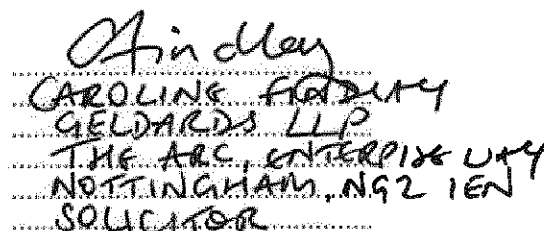 CFindlay
CAROLINE FINDLAY
GELDARDS LLP
THE ARC, ENTERPRISE WAY
NOTTINGHAM, NG2 1EN
SOLICITOR